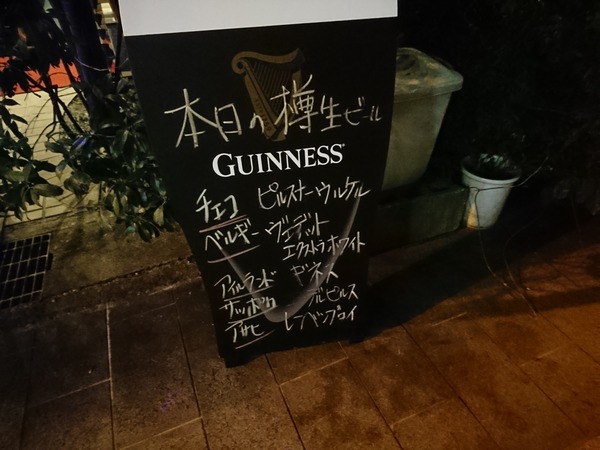 本日の樽生ビール
GUINNESS
チェコ ピルスナーウルケル
ベルギー ヴェデット
エクストラホワイト
アイルランド ギネス
サッポロ ポピルス
アサヒ レーベンブロイ